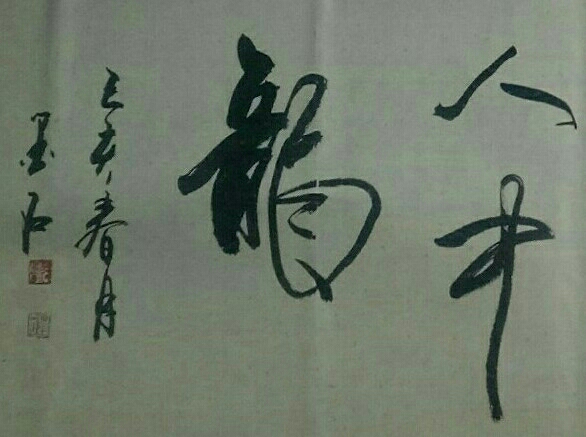 人中
龍
己亥春月
墨石